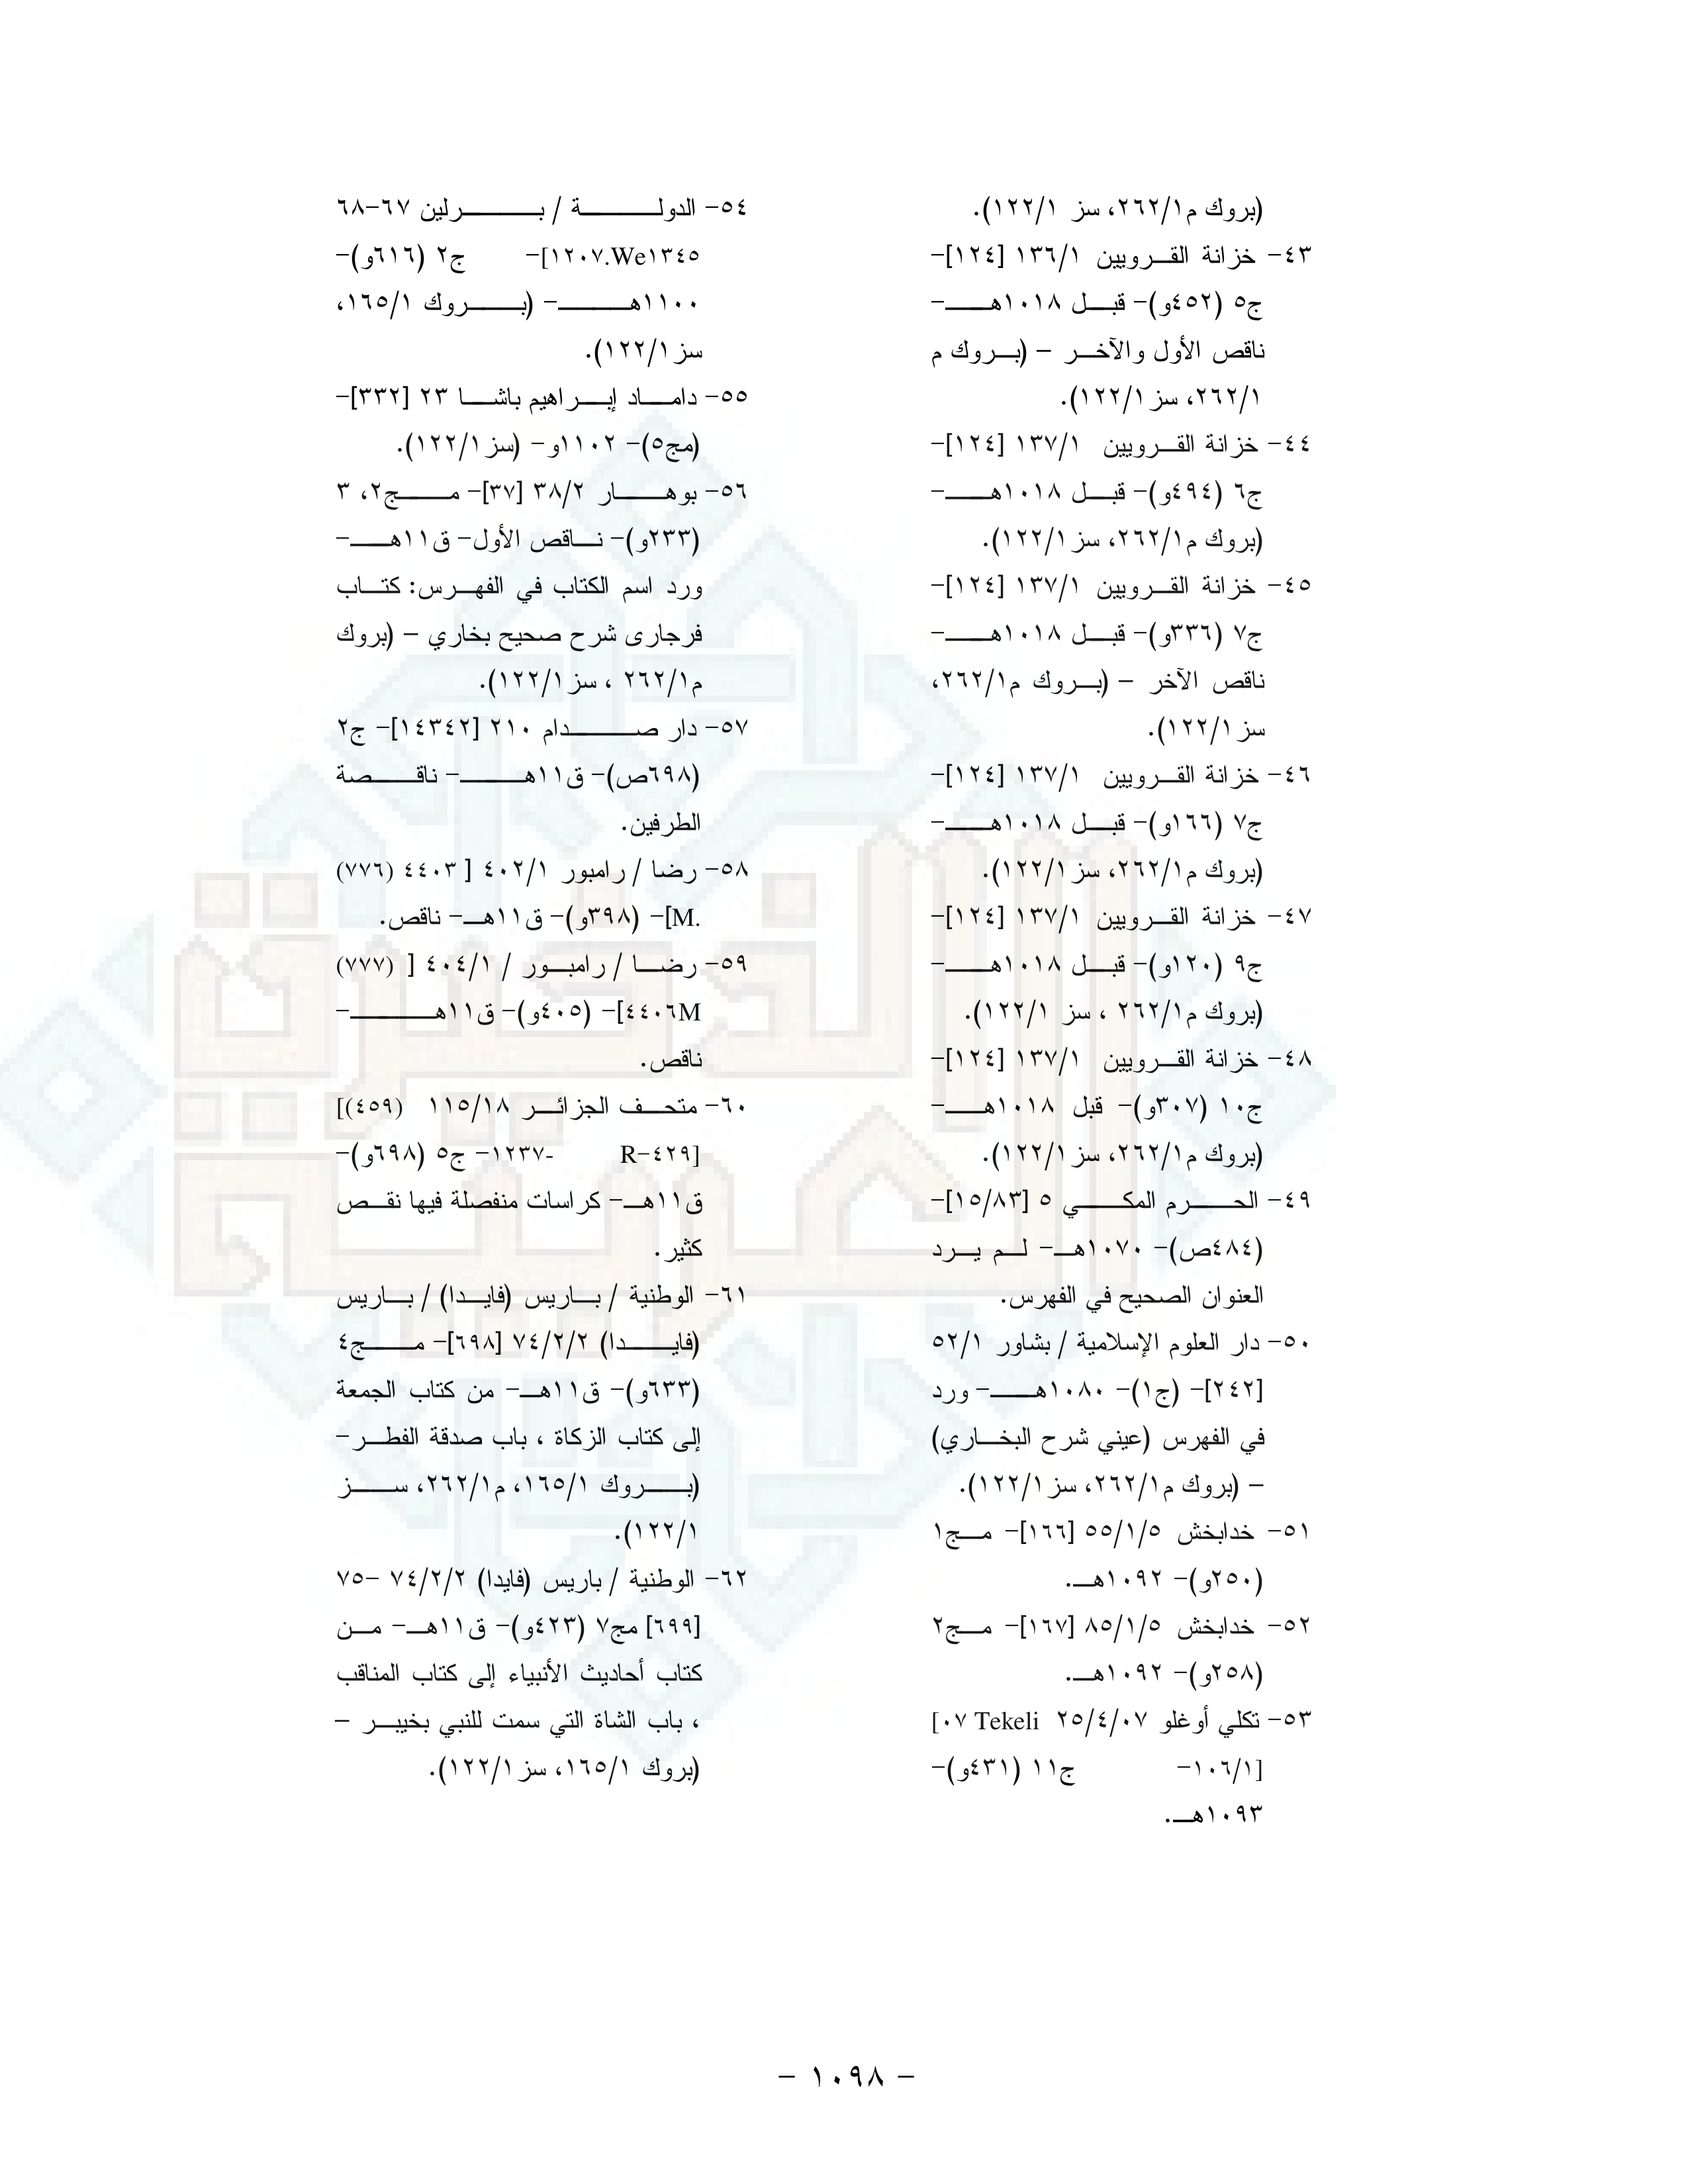 (بروك م٢٦٢/١، سز ١٢٢/١).
٤٣- خزانة القرويين ١٣٦/١ [١٢٤]-
ج٥ (٤٥٢و)- قبل ١٠١٨هـ-
ناقص الأول والآخر – (بروك م
٢٦٢/١، سز١٢٢/١).
٤٤- خزانة القرويين ١٣٧/١ [١٢٤]-
ج٦ (٤٩٤و)- قبل ١٠١٨هـ-
(بروك م٢٦٢/١، سز١٢٢/١).
٤٥- خزانة القرويين ١٣٧/١ [١٢٤]-
ج٧ (٣٣٦و)- قبل ١٠١٨هـ-
ناقص الآخر – (بروك م٢٦٢/١،
سز١٢٢/١).
٤٦- خزانة القرويين ١٣٧/١ [١٢٤]-
ج٧ (١٦٦و)- قبل ١٠١٨هـ-
(بروك م٢٦٢/١، سز١٢٢/١).
٤٧- خزانة القرويين ١٣٧/١ [١٢٤]-
ج٩ (١٢٠و)- قبل ١٠١٨هـ-
(بروك م٢٦٢/١ ، سز ١٢٢/١).
٤٨- خزانة القرويين ١٣٧/١ [١٢٤]-
ج١٠ (٣٠٧و)- قبل ١٠١٨هـ-
(بروك م٢٦٢/١، سز١٢٢/١).
٤٩- الحرم المكي ٥ [١٥/٨٣]-
(٤٨٤ص)- ١٠٧٠هـ- لم يرد
العنوان الصحيح في الفهرس.
٥٠- دار العلوم الإسلامية / بشاور ٥٢/١
[٢٤٢]- (ج١)- ١٠٨٠هـ- ورد
في الفهرس (عيني شرح البخاري)
– (بروك م٢٦٢/١، سز١٢٢/١).
٥١- خدابخش ٥٥/١/٥ [١٦٦]- مج١
(٢٥٠و)- ١٠٩٢هـ.
٥٢- خدابخش ٨٥/١/٥ [١٦٧]- مج٢
(٢٥٨و)- ١٠٩٢هـ.
٥٣- تكلي أوغلو ٢٥/٤/٠٧ Tekeli ٠٧]
[١٠٦/١- ج١١ (٤٣١و)-
١٠٩٣هـ.
٥٤- الدولة / برلين ٦٧-٦٨
١٢٠٧.We١٣٤٥]- ج٢ (٦١٦و)-
١١٠٠هـ- (بروك ١٦٥/١،
سز١٢٢/١).
٥٥- داماد إبراهيم باشا ٢٣ [٣٣٢]-
(مج٥)- ١١٠٢و- (سز١٢٢/١).
٥٦- بوهار ٣٨/٢ [٣٧]- مج٢، ٣
(٢٣٣و)- ناقص الأول- ق١١هـ-
ورد اسم الكتاب في الفهرس: كتاب
فرجارى شرح صحيح بخاري – (بروك
م٢٦٢/١ ، سز١٢٢/١).
٥٧- دار صدام ٢١٠ [١٤٣٤٢]- ج٢
(٦٩٨ص)- ق١١هـ- ناقصة
الطرفين.
٥٨- رضا / رامبور ٤٠٢/١ [ ٤٤٠٣ (٧٧٦)
M.]- (٣٩٨و)- ق١١هـ- ناقص.
٥٩- رضا / رامبور / ٤٠٤/١ [ (٧٧٧)
٤٤٠٦M]- (٤٠٥و)- ق١١هـ-
ناقص.
٦٠- متحف الجزائر ١١٥/١٨ (٤٥٩)]
[R-٤٢٩ -١٢٣٧- ج٥ (٦٩٨و)-
ق١١هـ- كراسات منفصلة فيها نقص
كثير.
٦١- الوطنية / باريس (فايدا) / باريس
(فايدا) ٧٤/٢/٢ [٦٩٨]- مج٤
(٦٣٣و)- ق١١هـ- من كتاب الجمعة
إلى كتاب الزكاة ، باب صدقة الفطر-
(بروك ١٦٥/١، م٢٦٢/١، سز
١٢٢/١).
٦٢- الوطنية / باريس (فايدا) ٧٤/٢/٢ -٧٥
[٦٩٩] مج٧ (٤٢٣و)- ق١١هـ- من
كتاب أحاديث الأنبياء إلى كتاب المناقب
، باب الشاة التي سمت للنبي بخيبر –
(بروك ١٦٥/١، سز١٢٢/١).
- ١٠٩٨ -